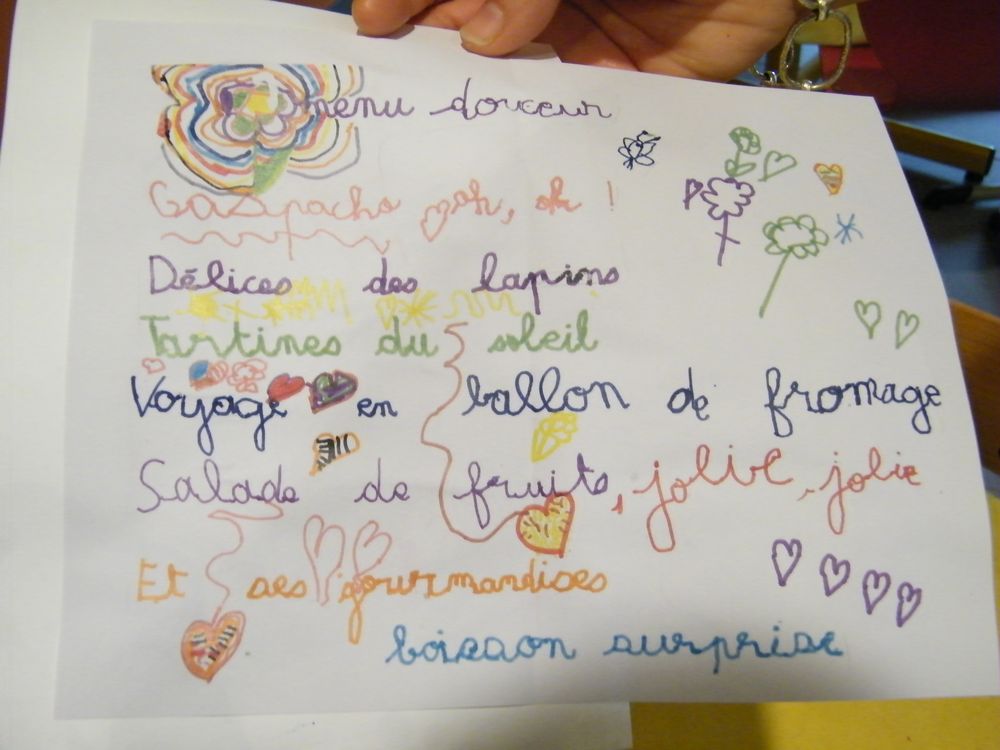 menu douceur
Gaspacho oh, oh !
Délices des lapins
Tartines du soleil
Voyage en ballon de fromage
Salade de fruits, jolie, jolie
Et ses gourmandises
boisson surprise